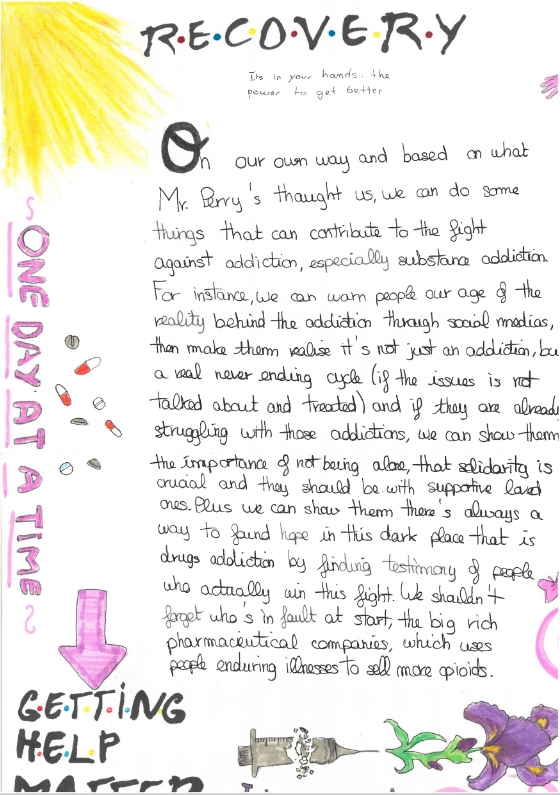 R.E.C.O.V.E.R.Y
Its in your hands: the
power to get better
On our own way and based on what
Mr. Perry's thaught us, we can do some
things that can contribute to the fight
against addiction, especially substance addiction.
For instance, we can warn people our age of the
reality behind the addiction through social medias,
then make them realise it's not just an addiction, bu
a real never ending cycle (if the issues is not
talked about and treated) and if they are already
struggling with those addictions, we can show them
the importance of not being alone, that solidarity is
crucial and they should be with supportive loved
ones. Plus we can show them there's always a
way to found hope in this dark place that is
drugs addiction by finding testimony of people
who actually win this fight. We shouldn't
forget who's in fault at start, the big rich
pharmaceutical companies, which uses
people enduring illnesses to sell more opioids.
~ONE DAY AT A TIME~
G.E.T.T.I.N.G
H.E.L.P
MATTER